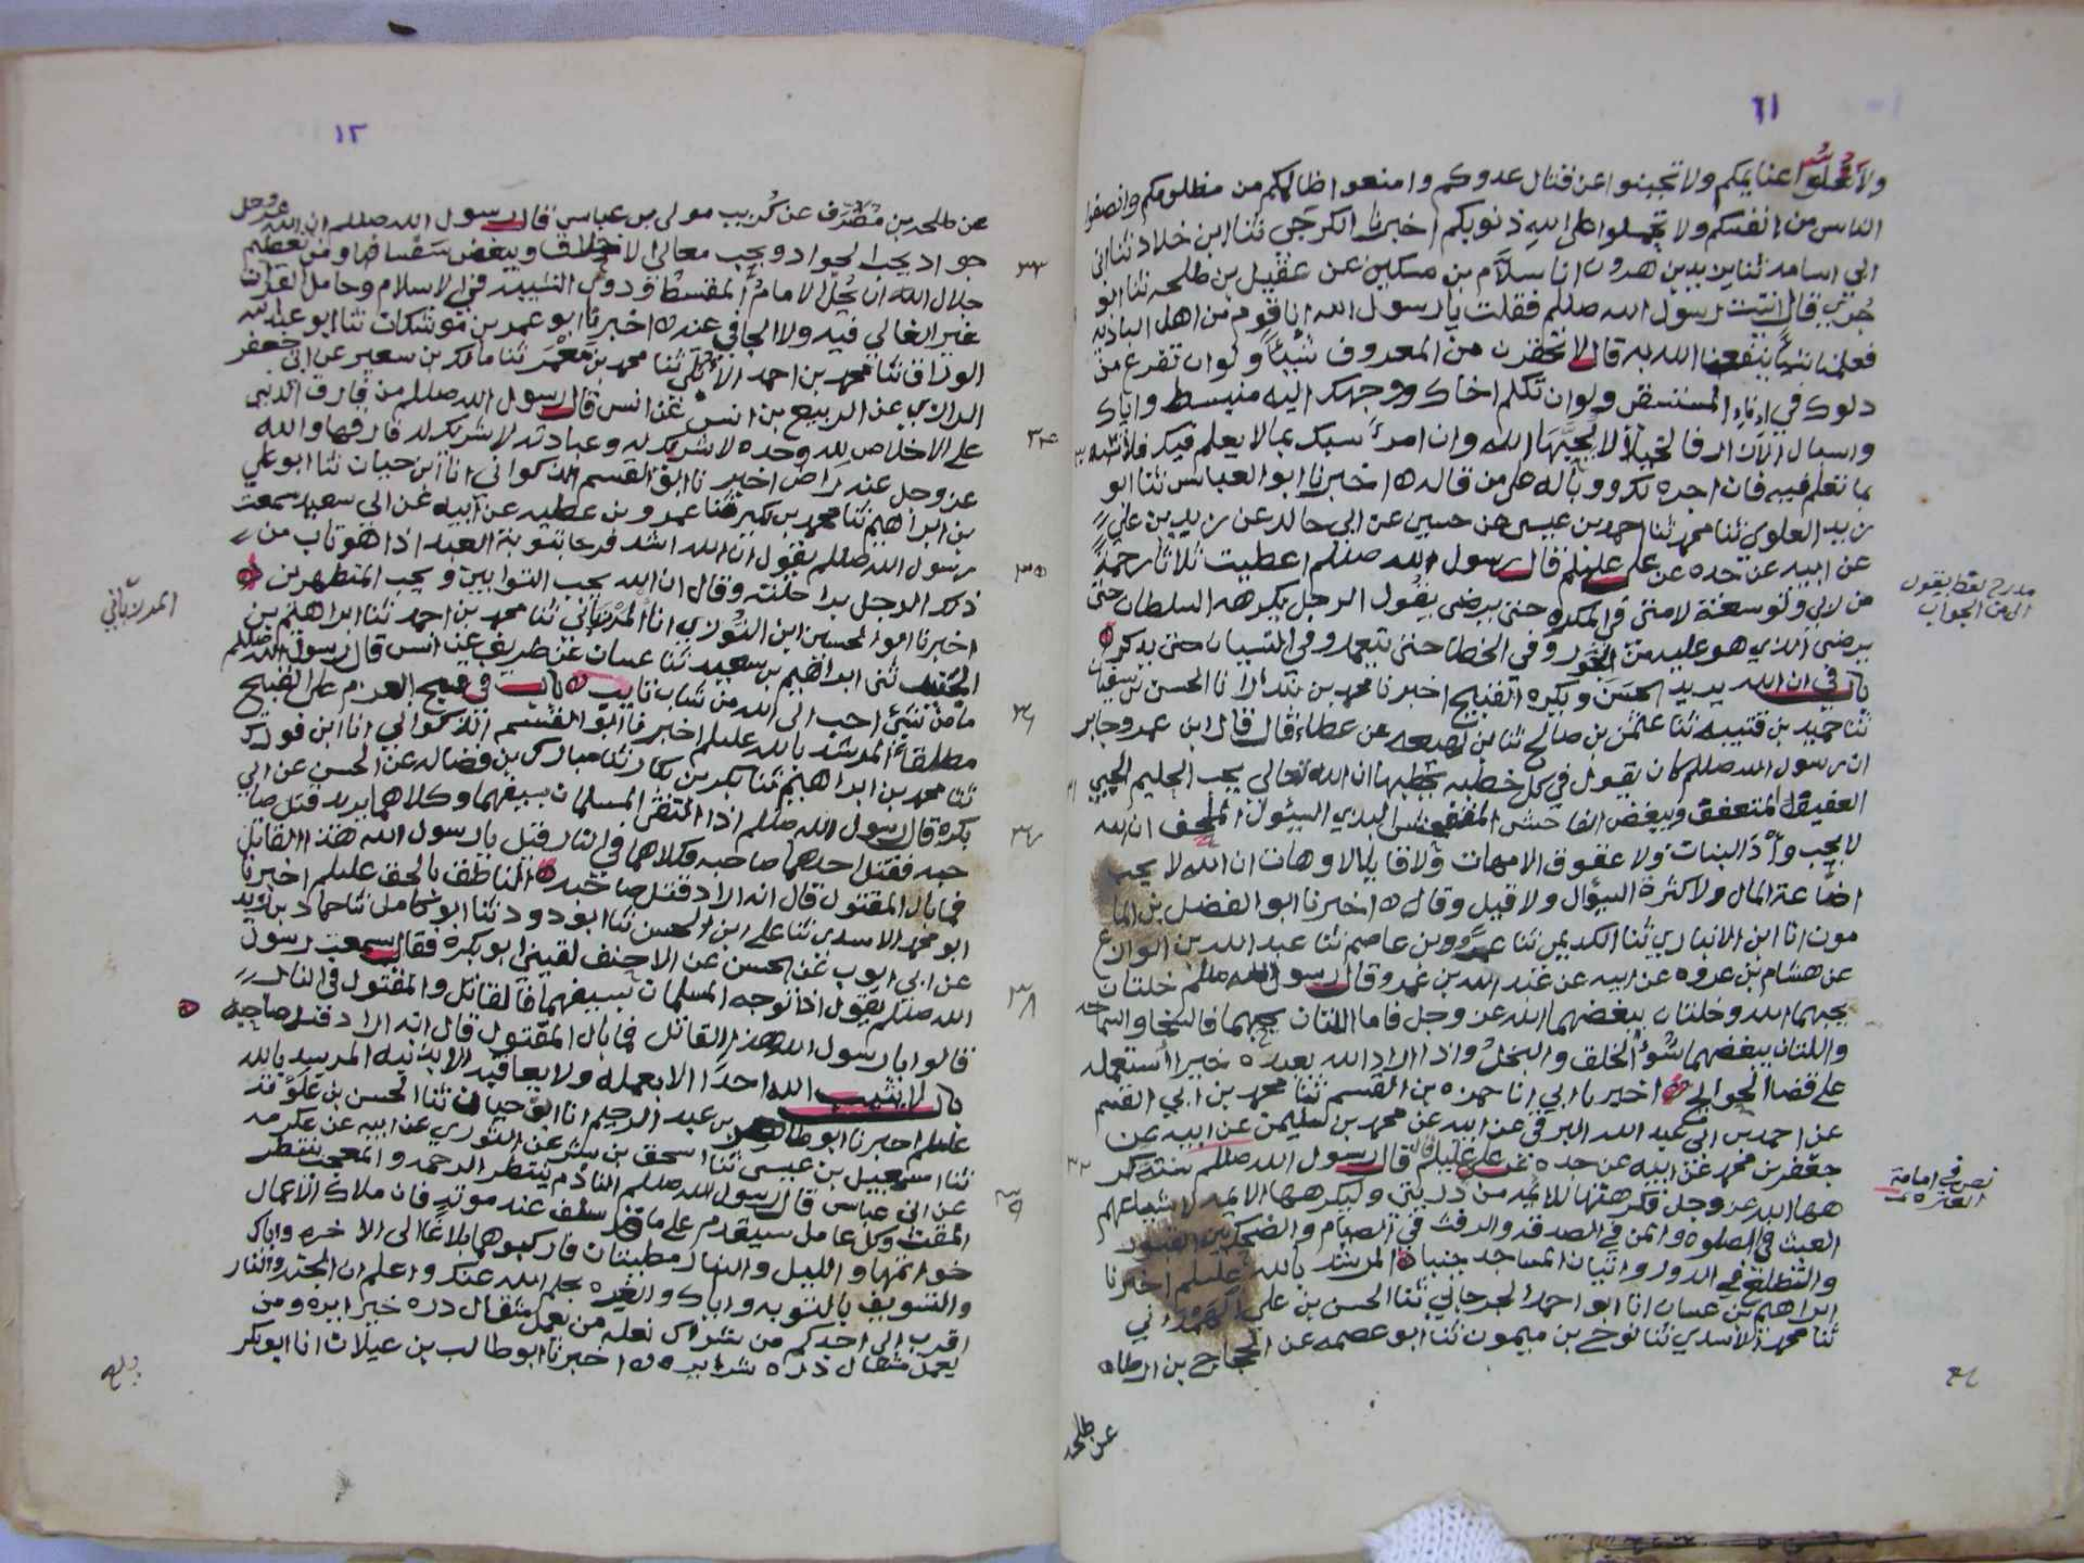 ١١
ولا تغلوا غنايمكم ولا تجبنوا عن قتال عدوكم وامنعوا ظالمكم من مظلومكم وانصفوا
الناس من انفسكم ولا تحملوا على الله ذنوبكم اخبرنا الكرجي ثنا ابن خلاد ثنا ابن
ابي اسامه ثنا يزيد بن هرون انا سلام بن مسكين عن عقيل بن طلحه ثنا ابو
جُرَي قال اتيت رسول الله صللم فقلت يا رسول الله انا قوم من اهل الباديه
فعلمنا شيأ ينفعنا الله به قال لا تحقرن من المعروف شيئا ولو ان تفرغ من
دلوك في اناء المستسقى ولو ان تكلم اخاك ووجهك اليه منبسط واياك
واسبال الازار فالخيلا لا يحبها الله وان امرء سبك بما لا يعلم فيك فلا تسبه
بما تعلم فيه فان اجره لك ووباله على من قاله ه اخبرنا ابو العباس ثنا ابو
زيد العلوي ثنا محمد ثنا احمد بن عيسى عن حسين عن ابي خالد عن زيد بن علي
عن ابيه عن جده عن علي علهلم قال رسول الله صللم اعطيت ثلاثا رحمة
من ربي وتوسعة لامتي في المكره حتى يرضى يقول الرجل يكرهه السلطان حتى
يرضى الذي هو عليه من الجور وفي الخطا حتى يتعمد وفي النسيان حتى يذكر ه
باب في ان الله يريد الحسن ويكره القبيح اخبرنا محمد بن بندار انا الحسن بن سفيان
ثنا حميد بن قتيبه ثنا عثمن بن صالح ثنا بن لهيعه عن عطاء قال قال ابن عمر وجابر
ان رسول الله صللم كان يقول في كل خطبه يخطبها ان الله تعالى يحب الحليم الحيي
العفيف المتعفف ويبغض الفاحش البذي السئول الملحف ان الله
لا يحب وأد البنات ولا عقوق الامهات ولا قايلا لا وهات ان الله لا يحب
اضاعة المال ولا كثرة السؤال ولا قيل وقال ه اخبرنا ابو الفضل بن الما
مون انا ابن الانباري ثنا الكديمي ثنا عمرو بن عاصم ثنا عبد الله بن الوازع
عن هشام بن عروه عن ابيه عن عبد الله بن عمرو قال رسول الله صللم خلتان
يحبهما الله وخلتان يبغضهما الله عز وجل فاما اللتان يحبهما فالسخا والسماحه
واللتان يبغضهما سوء الخلق والبخل واذا اراد الله بعبده خيرا استعمله
على قضا الحوايج ه اخبرنا ابي انا حمزه بن القسم ثنا محمد بن ابي القسم
عن احمد بن ابي عبد الله البرقي عن ابيه عن محمد بن سليمن عن ابيه عن
جعفر بن محمد عن ابيه عن جده عن علي عليلم قال قال رسول الله صللم ستة كر
هها الله عز وجل فكرهتها للايمه من ذريتي وليكرهها الايمه لاتباعهم
العبث في الصلوه والمن في الصدقه والرفث في الصيام والضحك بين القبور
والتطلع في الدور واتيان المساجد جنبا ه المرشد بالله عليلم اخبرنا
ابراهيم بن غسان انا ابو احمد الجرجاني ثنا الحسن بن علي
ثنا محمد الاسدي ثنا نوح بن ميمون ثنا ابو عصمه عن الحجاج بن ارطاه
عن طلحه
نص في امامة
العتره
٣٢
١٢
عن طلحه بن مصرف عن كريب مولى بن عباس قال رسول الله صللم ان الله عز وجل
جواد يحب الجواد ويحب معالي الاخلاق ويبغض سفسافها ومن تعظيم
جلال الله ان يُجل الامام المقسط وذوي الشيبه في الاسلام وحامل القران
غير الغالي فيه ولا الجافي عنه ه اخبرنا ابو عمر بن موشكان ثنا ابو عبد الله
الوراق ثنا محمد بن احمد ثنا محمد بن معمر ثنا مالك بن سعير عن ابي جعفر
الرازي عن الربيع بن انس عن انس قال رسول الله صللم من فارق الدنيا
على الاخلاص لله وحده لا شريك له وعبادته لا شريك له فارقها والله
عز وجل عنه راض اخبرنا ابو القسم الذكواني انا ابن حيان ثنا ابو علي
بن ابراهيم ثنا محمد بن بكير ثنا عمرو بن عطيه عن ابيه عن ابي سعيد سمعت
رسول الله صللم يقول ان الله اشد فرحا بتوبة العبد اذا هو تاب من
ذلك الرجل براحلته وقال ان الله يحب التوابين ويحب المتطهرين ه
اخبرنا ابو الحسين ابن التوزي انا المرزباني ثنا محمد بن احمد ثنا ابراهيم بن
الجنيد ثنى ابراهيم بن سعيد ثنا غسان عن طريف عن انس قال رسول الله صللم
ما من شئ احب الى الله من شاب تايب ه باب في قبح العزم على القبيح
مطلقا المرشد بالله عليلم اخبرنا ابو القسم الذكواني انا ابن فورك
ثنا محمد بن ابراهيم ثنا بكر بن بكار ثنا مبارك بن فضاله عن الحسن عن ابي
بكره قال رسول الله صللم اذا التقى المسلمان بسيفهما وكلاهما يريد قتل صا
حبه فقتل احدهما صاحبه فكلاهما في النار قيل يا رسول الله هذا القاتل
فما بال المقتول قال انه اراد قتل صاحبه ه الناطق بالحق عليلم اخبرنا
ابو محمد الاسدي ثنا علي ابن الحسن ثنا ابو دود ثنا ابو كامل ثنا حماد بن زيد
عن ابي ايوب عن الحسن عن الاحنف لقيني ابو بكره فقال سمعت رسول
الله صللم يقول اذا توجه المسلمان بسيفيهما فالقاتل والمقتول في النار
قالوا يا رسول الله هذا القاتل فما بال المقتول قال انه اراد قتل صاحبه ه
باب لا يثيب الله احدا الا بعمله ولا يعاقبه الا بذنبه المرشد بالله
عليلم اخبرنا ابو طاهر بن عبد الرحيم انا ابو حيان ثنا الحسن بن علويه
ثنا اسمعيل بن عيسى ثنا اسحق بن بشر عن الثوري عن ابيه عن عكرمه
عن ابن عباس قال رسول الله صللم النادم ينتظر الرحمه والمعجب ينتظر
المقت وكل عامل سيقدم على ما سلف عند موته فان ملاك الاعمال
خواتمها والليل والنهار مطيتان فاركبوهما بلاغا الى الاخره واياك
والتسويف بالتوبه واياك والغره بحلم الله عنك واعلم ان الجنه والنار
اقرب الى احدكم من شراك نعله من يعمل مثقال ذره خيرا يره ومن
يعمل مثقال ذره شرا يره ه اخبرنا ابو طالب بن غيلان انا ابو بكر
المرزباني
٣٣
٣٤
٣٥
٣٦
٣٧
٣٨
٣٩